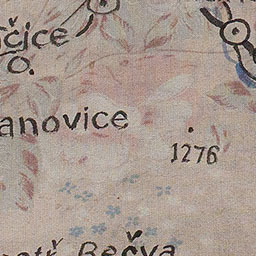 čice
O.
anovice
1276
Bečva